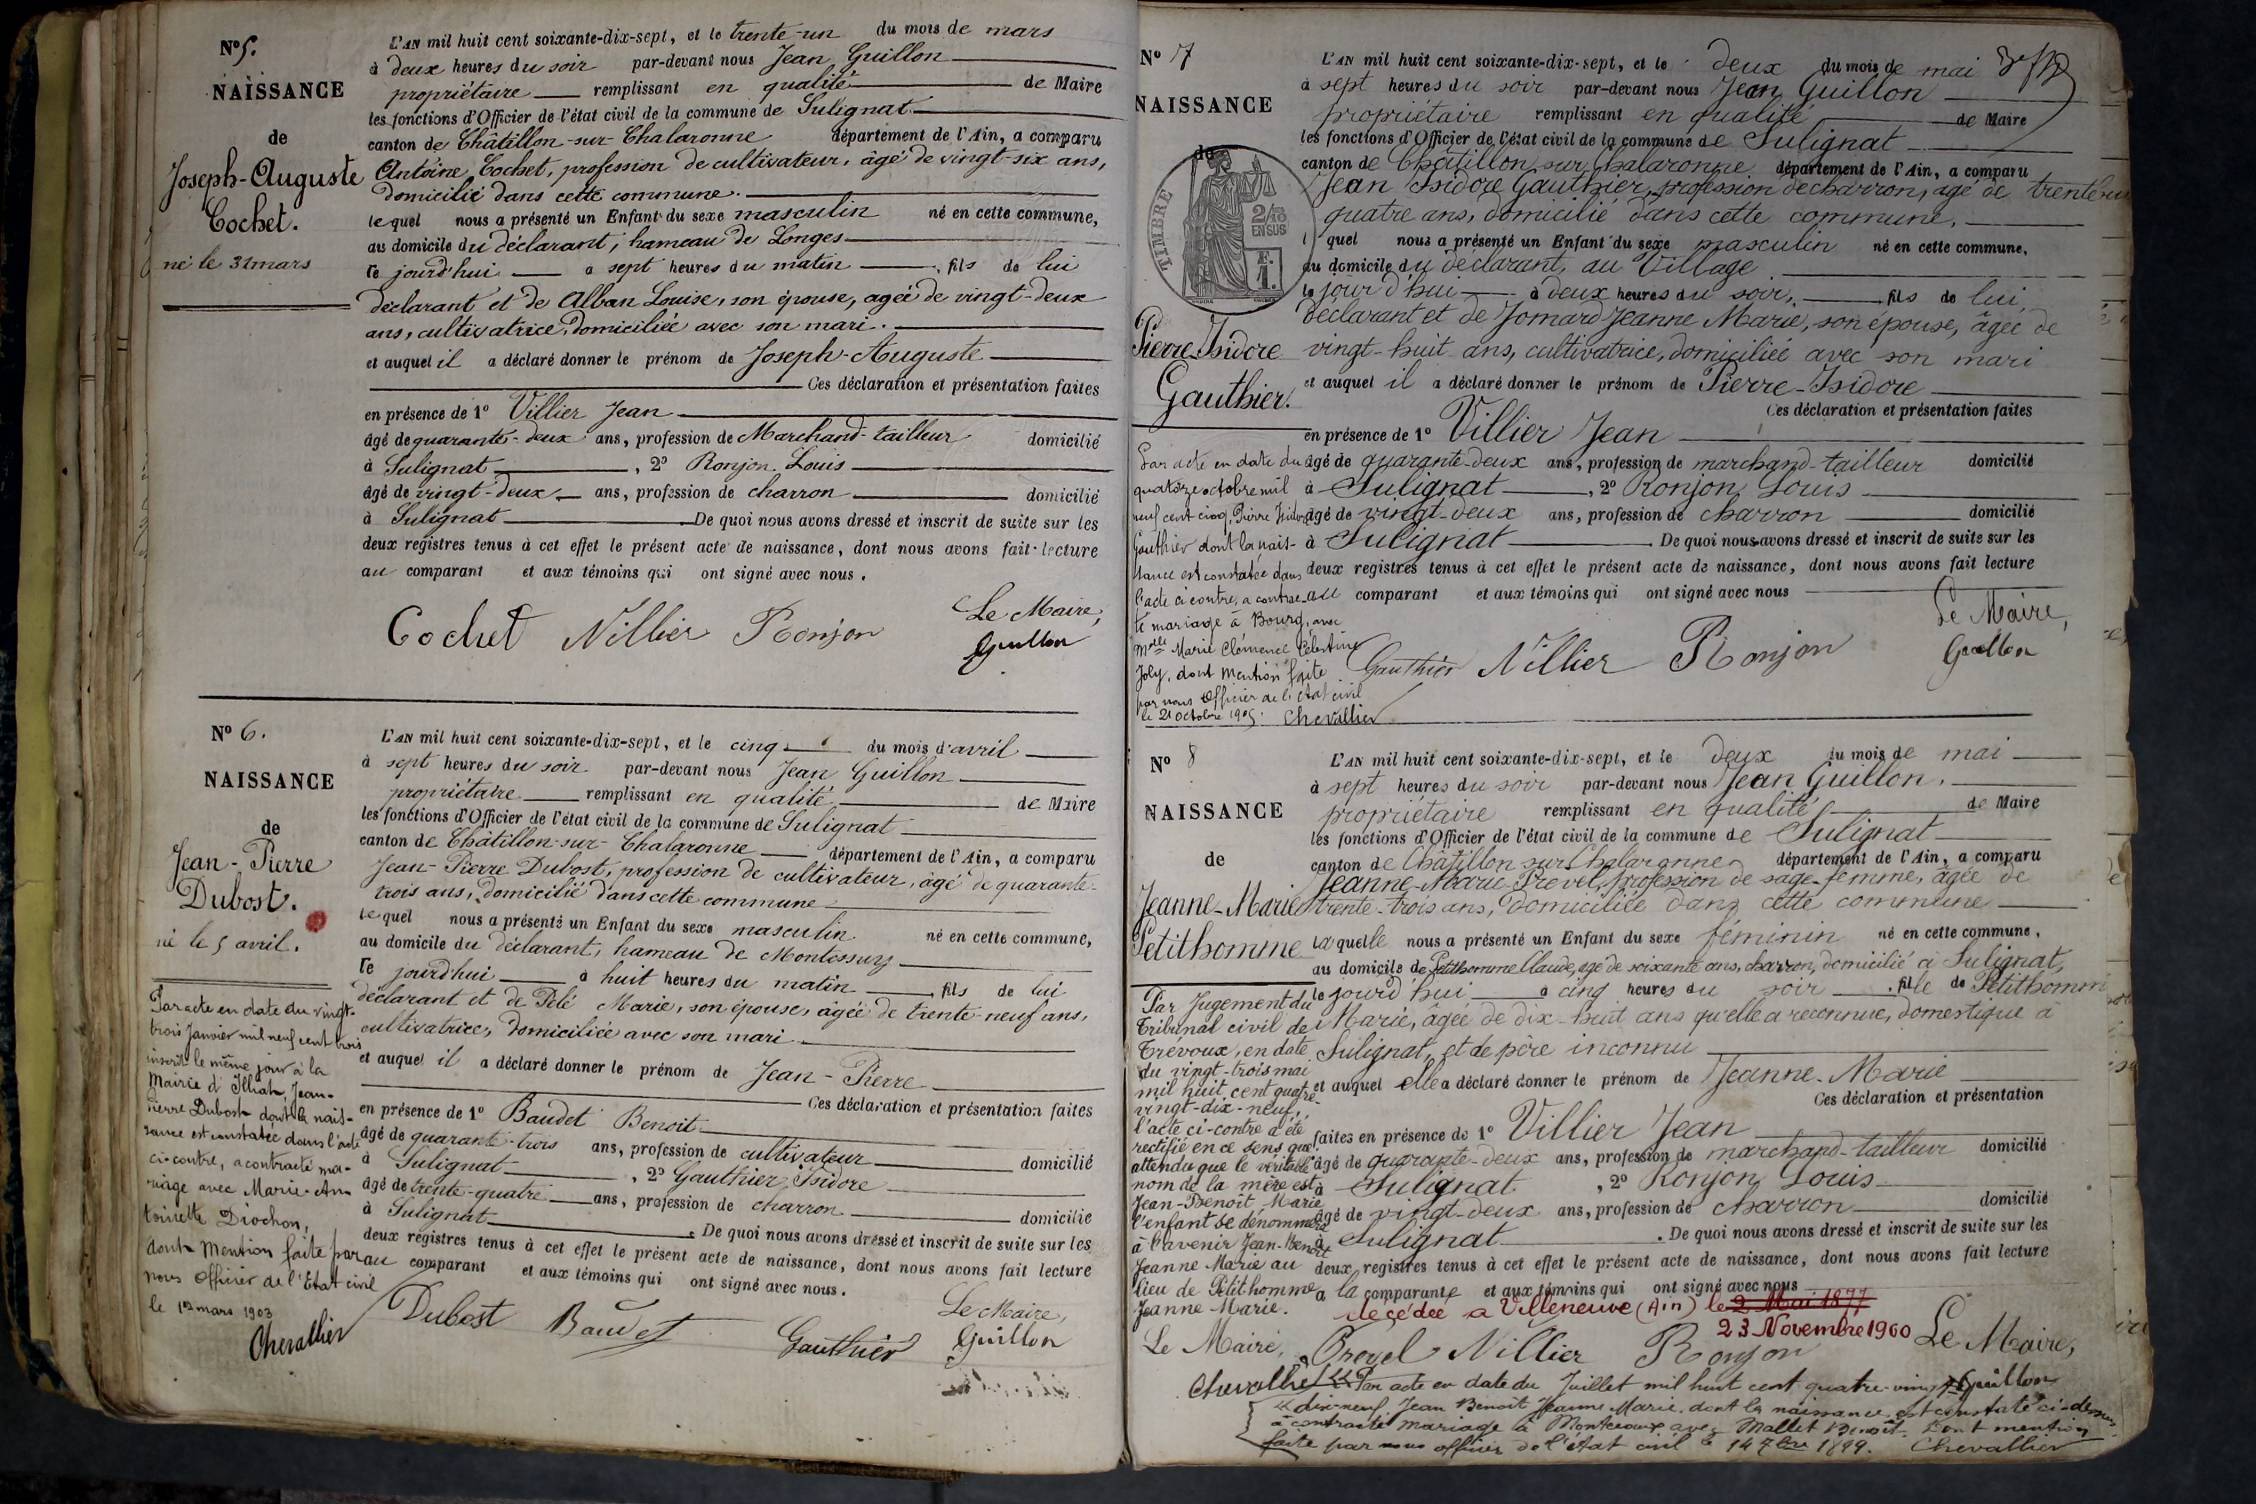 N° 5.
NAISSANCE
de
Joseph-Auguste
Cochet.
né le 31 mars
L'AN mil huit cent soixante-dix-sept, et le trente-un du mois de mars
à deux heures du soir par-devant nous Jean Guillon
propriétaire remplissant en qualité de Maire
les fonctions d'Officier de l'état civil de la commune de Sulignat
canton de Châtillon-sur-Chalaronne département de l'Ain, a comparu
Antoine Cochet, profession de cultivateur, âgé de vingt-six ans,
domicilié dans cette commune.
lequel nous a présenté un Enfant du sexe masculin né en cette commune,
au domicile du déclarant, hameau de Longes
le jourd'hui à sept heures du matin, fils de lui
déclarant et de Alban Louise, son épouse, agée de vingt-deux
ans, cultivatrice, domiciliée avec son mari.
et auquel il a déclaré donner le prénom de Joseph-Auguste
Ces déclaration et présentation faites
en présence de 1° Villier Jean
âgé de quarante-deux ans, profession de Marchand-tailleur domicilié
à Sulignat, 2° Ronjon Louis
âgé de vingt-deux ans, profession de charron domicilié
à Sulignat De quoi nous avons dressé et inscrit de suite sur les
deux registres tenus à cet effet le présent acte de naissance, dont nous avons fait lecture
au comparant et aux témoins qui ont signé avec nous.
Cochet Villier Ronjon Le Maire,
Guillon
N° 6.
NAISSANCE
de
Jean-Pierre
Dubost.
né le 5 avril.
Par acte en date du vingt-
trois Janvier mil neuf cent trois
inscrit le même jour à la
Mairie d'Illiat, Jean-
Pierre Dubost dont la nais-
sance est constatée dans l'acte
ci-contre, a contracté ma-
riage avec Marie-An-
toinette Diochon,
dont Mention faite par
nous officier de l'Etat civil
le 12 mars 1903
Chevallier
L'AN mil huit cent soixante-dix-sept, et le cinq du mois d'avril
à sept heures du soir par-devant nous Jean Guillon
propriétaire remplissant en qualité de Maire
les fonctions d'Officier de l'état civil de la commune de Sulignat
canton de Châtillon-sur-Chalaronne département de l'Ain, a comparu
Jean-Pierre Dubost, profession de cultivateur, âgé de quarante-
trois ans, domicilié dans cette commune
lequel nous a présenté un Enfant du sexe masculin né en cette commune,
au domicile du déclarant, hameau de Montessuy
le jourd'hui à huit heures du matin, fils de lui
déclarant et de Pelé Marie, son épouse, âgée de trente-neuf ans,
cultivatrice, domiciliée avec son mari.
et auquel il a déclaré donner le prénom de Jean-Pierre
Ces déclaration et présentation faites
en présence de 1° Baudet Benoit
âgé de quarante-trois ans, profession de cultivateur
à Sulignat, 2° Gauthier Isidore domicilié
âgé de trente-quatre ans, profession de charron
à Sulignat domicilié
De quoi nous avons dressé et inscrit de suite sur les
deux registres tenus à cet effet le présent acte de naissance, dont nous avons fait lecture
au comparant et aux témoins qui ont signé avec nous.
Dubost Baudet Gauthier Le Maire,
Guillon
N° 7
NAISSANCE
de
TIMBRE
2/10
EN SUS
F.
1.
Pierre-Isidore
Gauthier.
Par acte en date du
quatorze octobre mil
neuf cent cinq, Pierre Isidore
Gauthier dont la nais-
sance est constatée dans
l'acte ci contre, a contrac-
té mariage à Bourg, avec
Mlle Marie Clémence Célestine
Joly, dont Mention faite
par nous Officier de l'état civil
le 21 octobre 1905. Chevallier
L'AN mil huit cent soixante-dix-sept, et le deux du mois de mai
à sept heures du soir par-devant nous Jean Guillon
propriétaire remplissant en qualité de Maire
les fonctions d'Officier de l'état civil de la commune de Sulignat
canton de Châtillon sur Chalaronne département de l'Ain, a comparu
Jean Isidore Gauthier, profession de charron, agé de trente
quatre ans, domicilié dans cette commune,
lequel nous a présenté un Enfant du sexe masculin né en cette commune,
au domicile du déclarant, au Village
le jour d'hui à deux heures du soir, fils de lui
déclarant et de Jomard Jeanne Marie, son épouse, âgée de
vingt-huit ans, cultivatrice, domiciliée avec son mari
et auquel il a déclaré donner le prénom de Pierre-Isidore
Ces déclaration et présentation faites
en présence de 1° Villier Jean
âgé de quarante-deux ans, profession de marchand-tailleur domicilié
à Sulignat, 2° Ronjon Louis
âgé de vingt-deux ans, profession de charron domicilié
à Sulignat. De quoi nous avons dressé et inscrit de suite sur les
deux registres tenus à cet effet le présent acte de naissance, dont nous avons fait lecture
au comparant et aux témoins qui ont signé avec nous
Le Maire,
Gauthier Villier Ronjon Guillon
N° 8
NAISSANCE
de
Jeanne-Marie
Petithomme
Par Jugement du
Tribunal civil de
Trévoux, en date
du vingt-trois mai
mil huit cent quatre-
vingt-dix-neuf,
l'acte ci-contre a été
rectifié en ce sens que
attendu que le véritable
nom de la mère est
Jean-Benoît Marie
l'enfant se dénommera
à l'avenir Jean-Benoît
Jeanne Marie au
lieu de Petithomme
Jeanne Marie.
Le Maire,
Chevallier
L'AN mil huit cent soixante-dix-sept, et le deux du mois de mai
à sept heures du soir par-devant nous Jean Guillon,
propriétaire remplissant en qualité de Maire
les fonctions d'Officier de l'état civil de la commune de Sulignat
canton de Châtillon sur Chalaronne département de l'Ain, a comparu
Jeanne-Marie Prevel, profession de sage-femme, agée de
trente-trois ans, domiciliée dans cette commune
laquelle nous a présenté un Enfant du sexe féminin né en cette commune,
au domicile de Petithomme Claude, agé de soixante ans, charron, domicilié à Sulignat,
le jourd'hui à cinq heures du soir, fille de Petithomme
Marie, âgée de dix-huit ans qu'elle a reconnue, domestique à
Sulignat, et de père inconnu
et auquel elle a déclaré donner le prénom de Jeanne-Marie
Ces déclaration et présentation
faites en présence de 1° Villier Jean
âgé de quarante-deux ans, profession de marchand-tailleur domicilié
à Sulignat, 2° Ronjon Louis
âgé de vingt-deux ans, profession de charron domicilié
à Sulignat. De quoi nous avons dressé et inscrit de suite sur les
deux registres tenus à cet effet le présent acte de naissance, dont nous avons fait lecture
à la comparante et aux témoins qui ont signé avec nous
décédée a Villeneuve (Ain) le 2 Mai 1877
23 Novembre 1960
Prevel Villier Ronjon Le Maire,
Guillon
Par acte en date du Juillet mil huit cent quatre-vingt
dix-neuf, Jean Benoît Jeanne Marie, dont la naissance est constaté ci-dessus
à contracté mariage à Montceaux avec Mallet Benoît. Dont mention
faite par nous officier de l'état civil le 14 7bre 1899. Chevallier